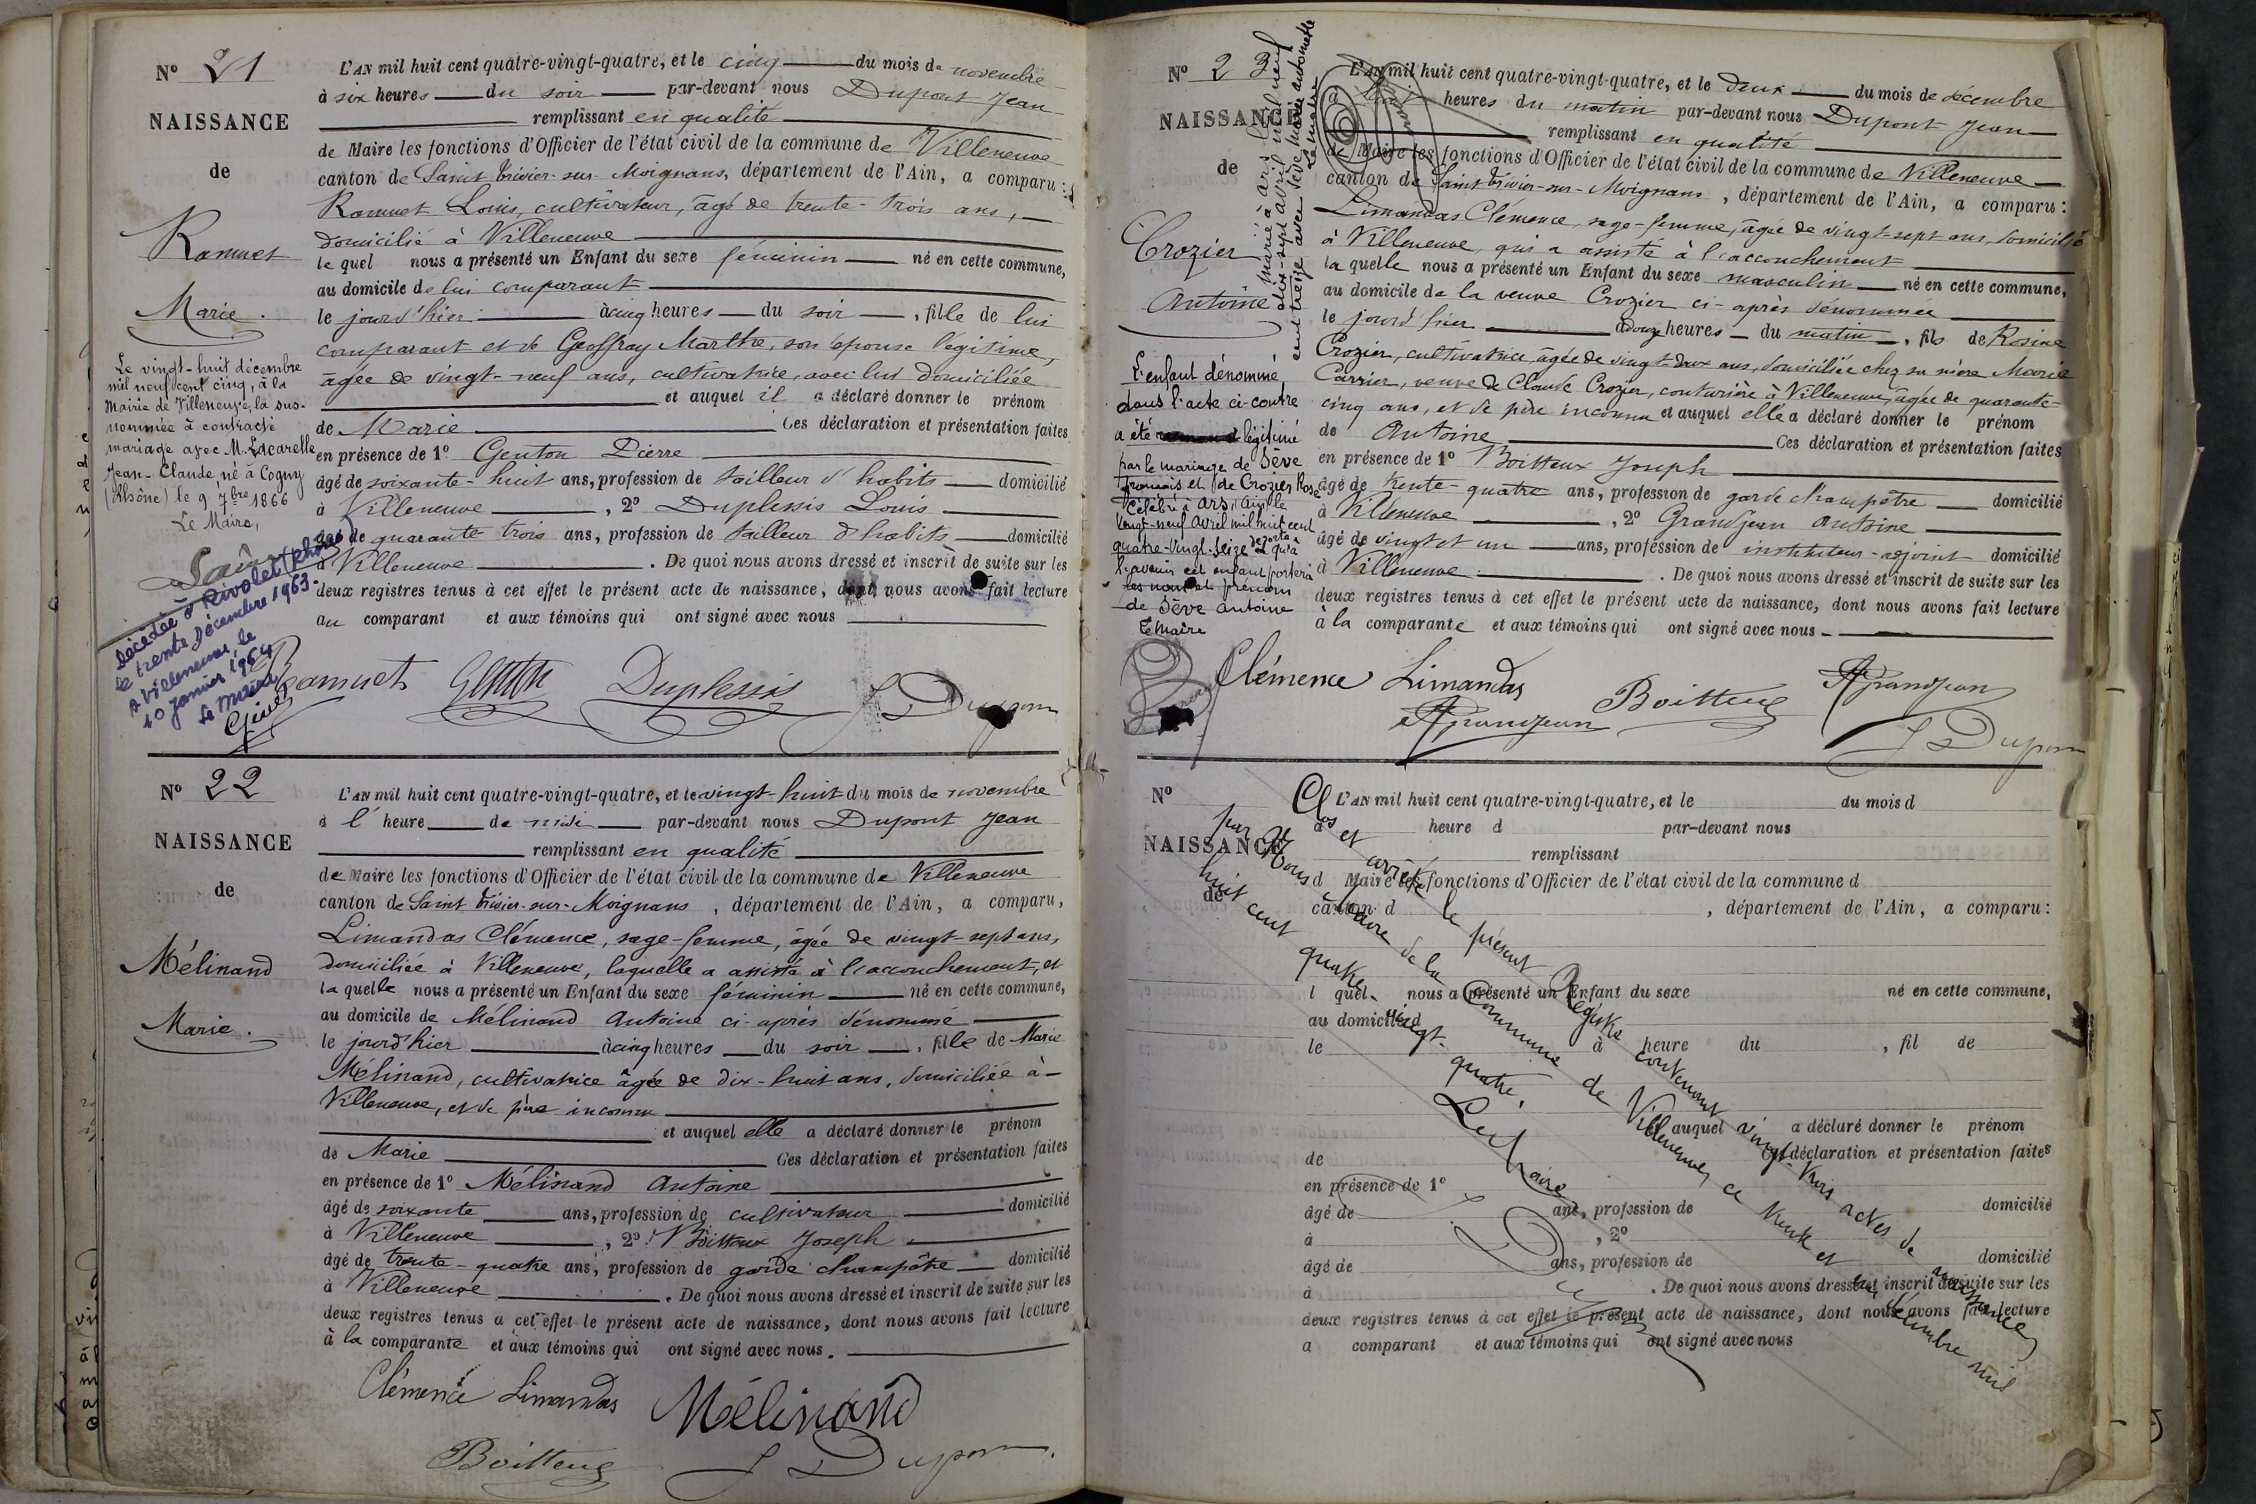 N° 21
NAISSANCE
de
Ramuet
Marie.
Le vingt-huit décembre
mil neuf cent cinq, à la
Mairie de Villeneuve, la sus-
nommée à contracté
mariage avec M. Lacarelle
Jean-Claude, né à Cogny
(Rhône) le 9 7bre 1866
Le Maire,
Décédée à Rivolet (Rhône)
le trente Décembre 1963.
A Villeneuve, le
10 Janvier 1964
Le Maire
L'AN mil huit cent quatre-vingt-quatre, et le cinq du mois de novembre
à six heures du soir par-devant nous Dupont Jean
remplissant en qualité
de Maire les fonctions d'Officier de l'état civil de la commune de Villeneuve
canton de Saint Trivier-sur-Moignans, département de l'Ain, a comparu :
Ramuet Louis, cultivateur, âgé de trente-trois ans,
domicilié à Villeneuve
le quel nous a présenté un Enfant du sexe féminin né en cette commune,
au domicile de lui comparant
le jourd'hier à cinq heures du soir, fille de lui
comparant et de Geoffray Marthe, son épouse légitime,
âgée de vingt-neuf ans, cultivatrice, avec lui domiciliée
et auquel il a déclaré donner le prénom
de Marie Ces déclaration et présentation faites
en présence de 1° Genton Pierre
âgé de soixante-huit ans, profession de tailleur d'habits domicilié
à Villeneuve, 2° Duplessis Louis
âgé de quarante trois ans, profession de tailleur d'habits domicilié
à Villeneuve. De quoi nous avons dressé et inscrit de suite sur les
deux registres tenus à cet effet le présent acte de naissance, dont nous avons fait lecture
au comparant et aux témoins qui ont signé avec nous
Ramuet Genton Duplessis J Dupont
N° 22
NAISSANCE
de
Mélinand
Marie.
L'AN mil huit cent quatre-vingt-quatre, et le vingt-huit du mois de novembre
à l' heure de midi par-devant nous Dupont Jean
remplissant en qualité
de Maire les fonctions d'Officier de l'état civil de la commune de Villeneuve
canton de Saint Trivier-sur-Moignans, département de l'Ain, a comparu,
Limandas Clémence, sage-femme, âgée de vingt-sept ans,
domiciliée à Villeneuve, laquelle a assisté à l'accouchement, et
la quelle nous a présenté un Enfant du sexe féminin né en cette commune,
au domicile de Mélinand Antoine ci-après dénommé
le jourd'hier à cinq heures du soir, fille de Marie
Mélinand, cultivatrice âgée de dix-huit ans, domiciliée à
Villeneuve, et de père inconnu
et auquel elle a déclaré donner le prénom
de Marie Ces déclaration et présentation faites
en présence de 1° Mélinand Antoine
âgé de soixante ans, profession de cultivateur domicilié
à Villeneuve, 2° Boitteux Joseph
âgé de trente-quatre ans, profession de garde champêtre domicilié
à Villeneuve. De quoi nous avons dressé et inscrit de suite sur les
deux registres tenus à cet effet le présent acte de naissance, dont nous avons fait lecture
à la comparante et aux témoins qui ont signé avec nous.
Clémence Limandas Mélinand
Boitteux J Dupont
N° 23
NAISSANCE
de
Crozier
Antoine
Marié à Ars le
dix-sept avril mil neuf
cent treize avec Sève Marie Antoinette
Le Maire
L'enfant dénommé
dans l'acte ci-contre
a été légitimé
par le mariage de Sève
François et de Crozier Rose
Célébré à Ars, Ain le
Vingt-neuf Avril mil huit cent
quatre-vingt-seize
l'avenir cet enfant portera
les nom et prénom
de Sève Antoine
Le Maire
L'AN mil huit cent quatre-vingt-quatre, et le deux du mois de décembre
heures du matin par-devant nous Dupont Jean
remplissant en qualité
de Maire les fonctions d'Officier de l'état civil de la commune de Villeneuve
canton de Saint Trivier-sur-Moignans, département de l'Ain, a comparu :
Limandas Clémence, sage-femme, âgée de vingt-sept ans, domiciliée
à Villeneuve, qui a assisté à l'accouchement
la quelle nous a présenté un Enfant du sexe masculin né en cette commune,
au domicile de la veuve Crozier ci-après dénommée
le jourd'hier à onze heures du matin, fils de Rosine
Crozier, cultivatrice, âgée de vingt-deux ans, domiciliée chez sa mère Marie
Carrier, veuve de Claude Crozier, couturière à Villeneuve, âgée de quarante-
cinq ans, et de père inconnu et auquel elle a déclaré donner le prénom
de Antoine Ces déclaration et présentation faites
en présence de 1° Boitteux Joseph
âgé de trente-quatre ans, profession de garde champêtre domicilié
à Villeneuve, 2° Grandjean Antoine
âgé de vingt et un ans, profession de instituteur-adjoint domicilié
à Villeneuve. De quoi nous avons dressé et inscrit de suite sur les
deux registres tenus à cet effet le présent acte de naissance, dont nous avons fait lecture
à la comparante et aux témoins qui ont signé avec nous
Clémence Limandas Boitteux AGrandjean
AGrandjean J Dupont
N°
NAISSANCE
de
L'AN mil huit cent quatre-vingt-quatre, et le du mois d
à heure d par-devant nous
remplissant
d Maire les fonctions d'Officier de l'état civil de la commune d
canton d , département de l'Ain, a comparu :
l quel nous a présenté un Enfant du sexe né en cette commune,
au domicile d
le à heure du , fil de
et auquel a déclaré donner le prénom
de Ces déclaration et présentation faites
en présence de 1°
âgé de ans, profession de domicilié
à , 2°
âgé de ans, profession de domicilié
à . De quoi nous avons dressé et inscrit de suite sur les
deux registres tenus à cet effet le présent acte de naissance, dont nous avons fait lecture
a comparant et aux témoins qui ont signé avec nous
Clos et arrêté le présent Registre contenant vingt-trois actes de naissance,
par Nous Maire de la Commune de Villeneuve, ce trente et un décembre mil
huit cent quatre vingt-quatre.
Le Maire
J Dupont